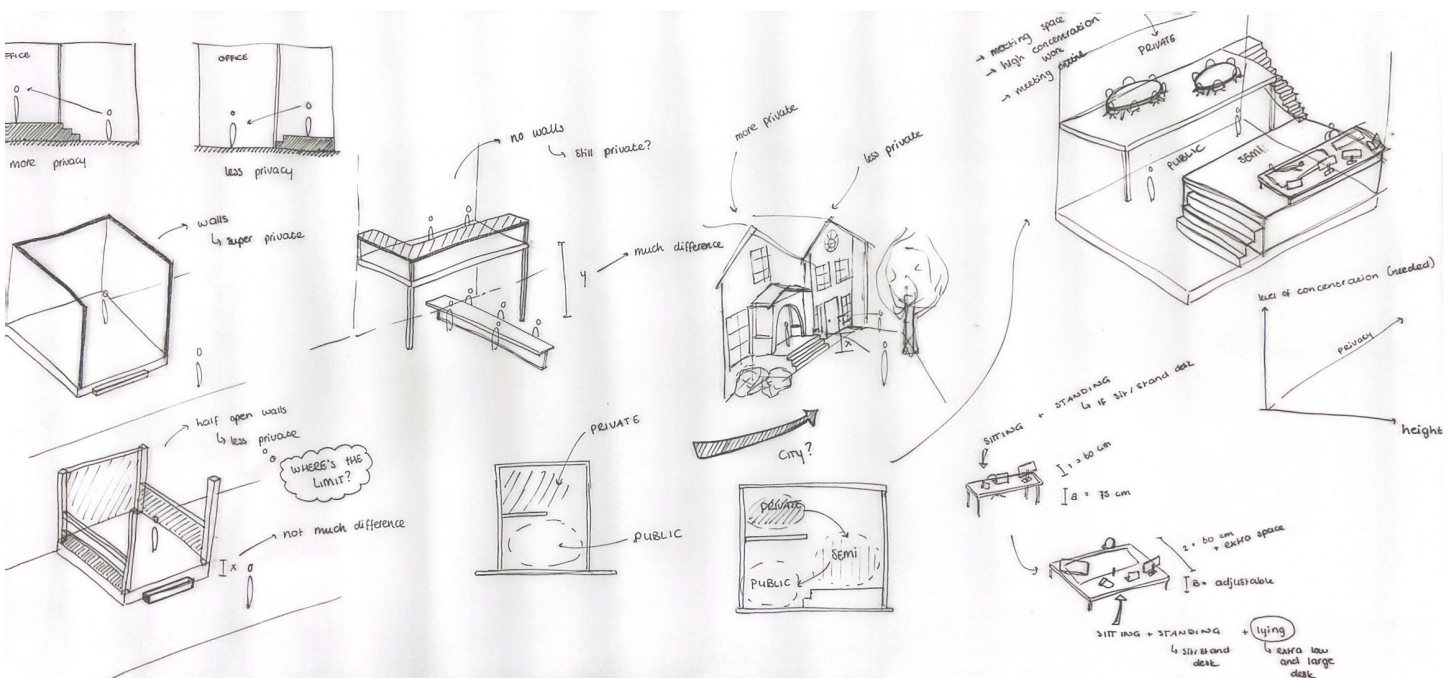 FFICE
more privacy
OFFICE
less privacy
no walls
↳ still private?
walls
↳ super private
y
much difference
half open walls
↳ less private
WHERE'S THE
LIMIT?
not much difference
x
PRIVATE
PUBLIC
more private
less private
x
CITY?
PRIVATE
SEMI
PUBLIC
→ meeting space
→ high concentration
work
→ meeting
PRIVATE
PUBLIC
SEMI
level of concentration (needed)
PRIVACY
height
SITTING + STANDING
↳ if sit/stand desk
1 = 60 cm
a = 75 cm
2 = 60 cm
+ extra space
B = adjustable
SITTING + STANDING + lying
↳ sit/stand
desk
↳ extra low
and large
desk